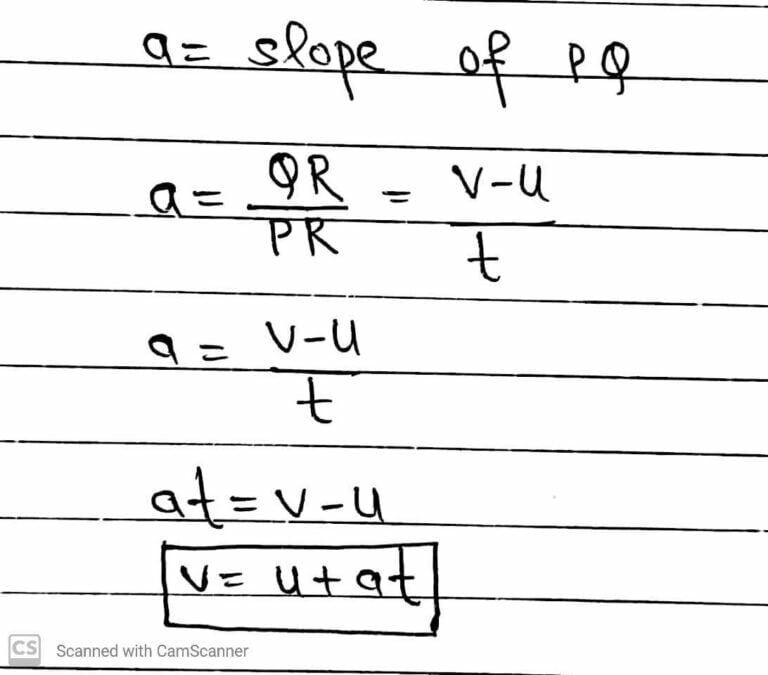 a = slope of PQ
a = QR/PR = v-u/t
a = v-u/t
at = v-u
v = u+at
CS Scanned with CamScanner